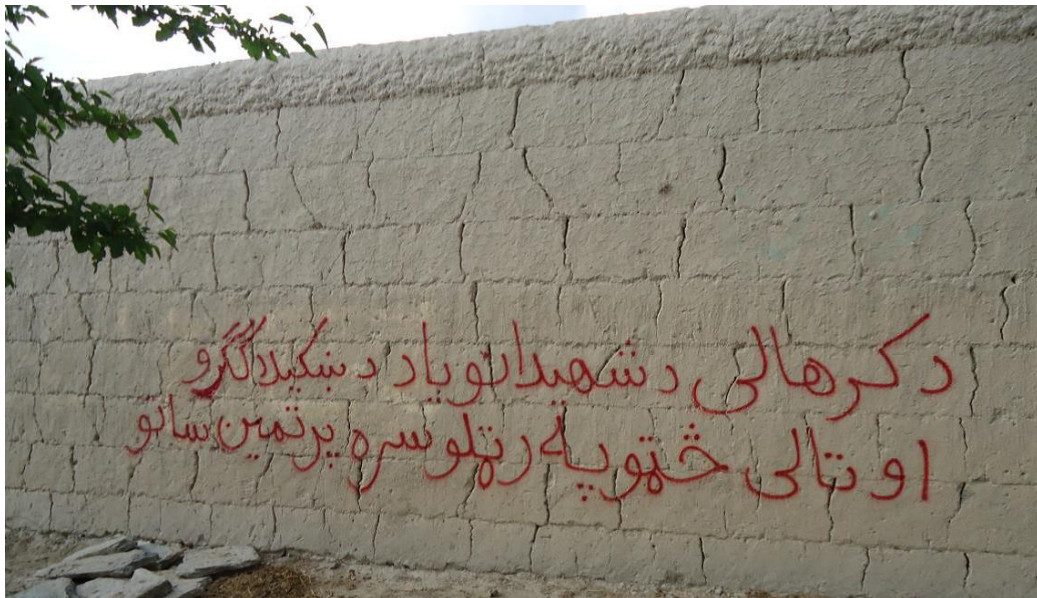 د کرهالی د شهیدانو یاد د ښکیلاکگرو
او تالی څټو په رټلو سره پرتمین ساتو